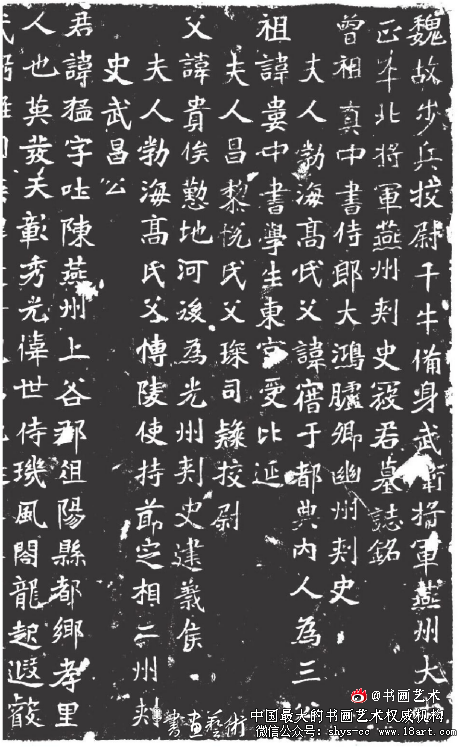 魏故步兵挍尉千牛備身武衛將軍燕州大中
正平北將軍燕州刾史寇君墓誌銘
曾祖真中書侍郎大鴻臚卿幽州刾史
夫人勃海髙氏父諱于都典内人為三
祖諱婁中書學生東宮受比延
夫人昌黎悅氏父琛司隸挍尉
父諱貴俟懃地河後為光州刾史建義侯
夫人勃海髙氏父愽陵使持節定相二州刾
史武昌公
君諱猛字吐陳燕州上谷郡俎陽縣都鄉孝里
人也蓂夫彰秀光偉世侍璣風閣龍起遐
書画藝術
@书画艺术
中国最大的书画艺术权威机构
微信公众号: shys-cc www.18art.com